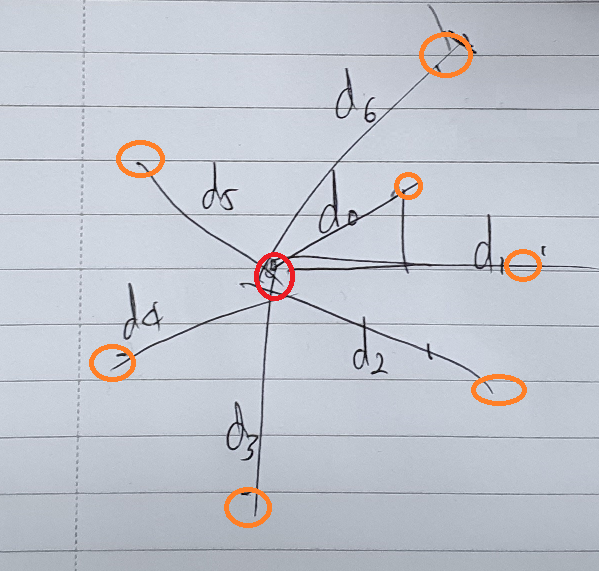 d6
d5
d0
d1
d4
d2
d3